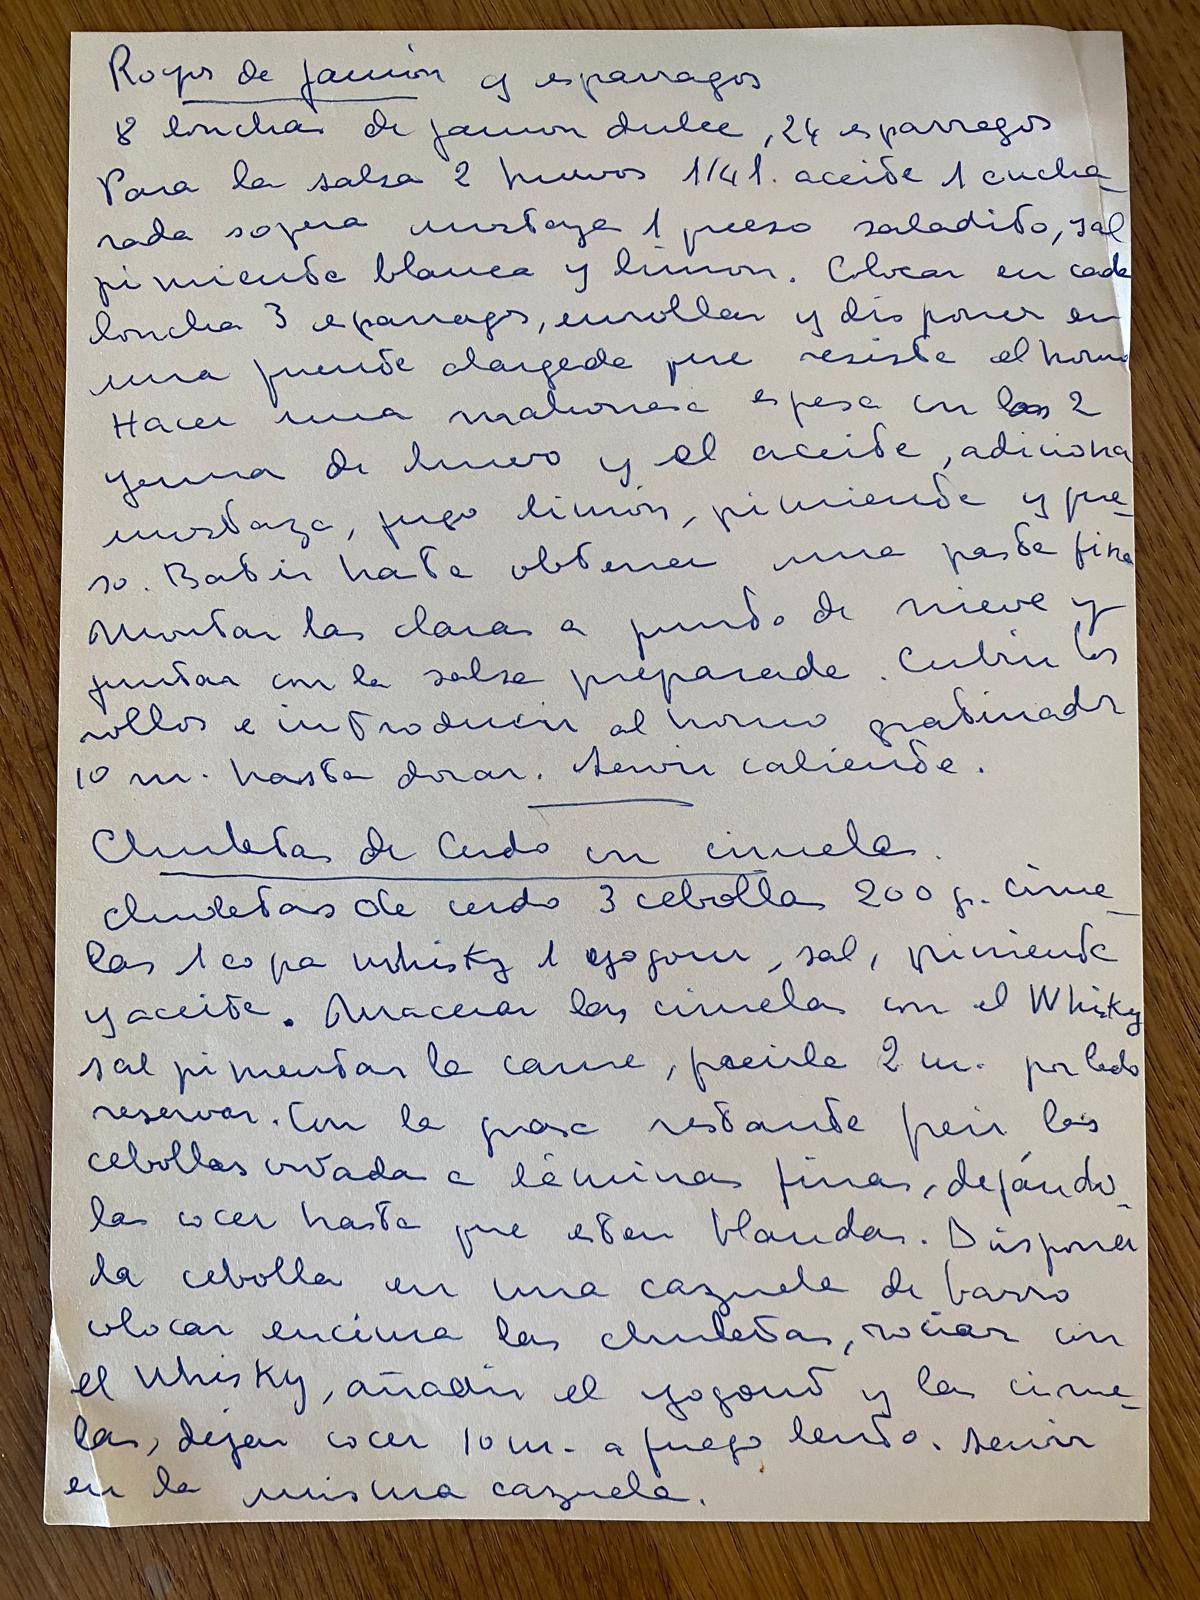 Royos de jamón y esparragos
8 lonchas de jamon dulce, 24 esparragos
Para la salsa 2 huevos 1/4 l. aceite 1 cucha-
rada sopera mostaza 1 queso saladito, sal
pimienta blanca y limon. Colocar en cada
loncha 3 esparragos, enrollar y disponer en
una fuente alargada que resista el horno
Hacer una mahonesa espesa con las 2
yema de huevo y el aceite, adiciona
mostaza, jugo limón, pimienta y que-
so. Batir hasta obtener una pasta fina
Montar las claras a punto de nieve y
juntar con la salsa preparada. Cubrir los
rollos e introducir al horno gratinador
10 m. hasta dorar. Servir caliente.
Chuletas de Cerdo con ciruelas.
chuletas de cerdo 3 cebollas 200 g. cirue-
las 1 copa whisky 1 yogour, sal, pimienta
y aceite. Macerar las ciruelas con el Whisky
sal pimentar la carne, freirla 2 m. por lado
reservar. Con la grasa restante freir las
cebollas cortada a láminas finas, dejándo-
las cocer hasta que esten blandas. Disponer
la cebolla en una cazuela de barro
colocar encima las chuletas, rociar con
el Whisky, añadir el yogourt y las cirue-
las, dejar cocer 10 m. a fuego lento. Servir
en la misma cazuela.